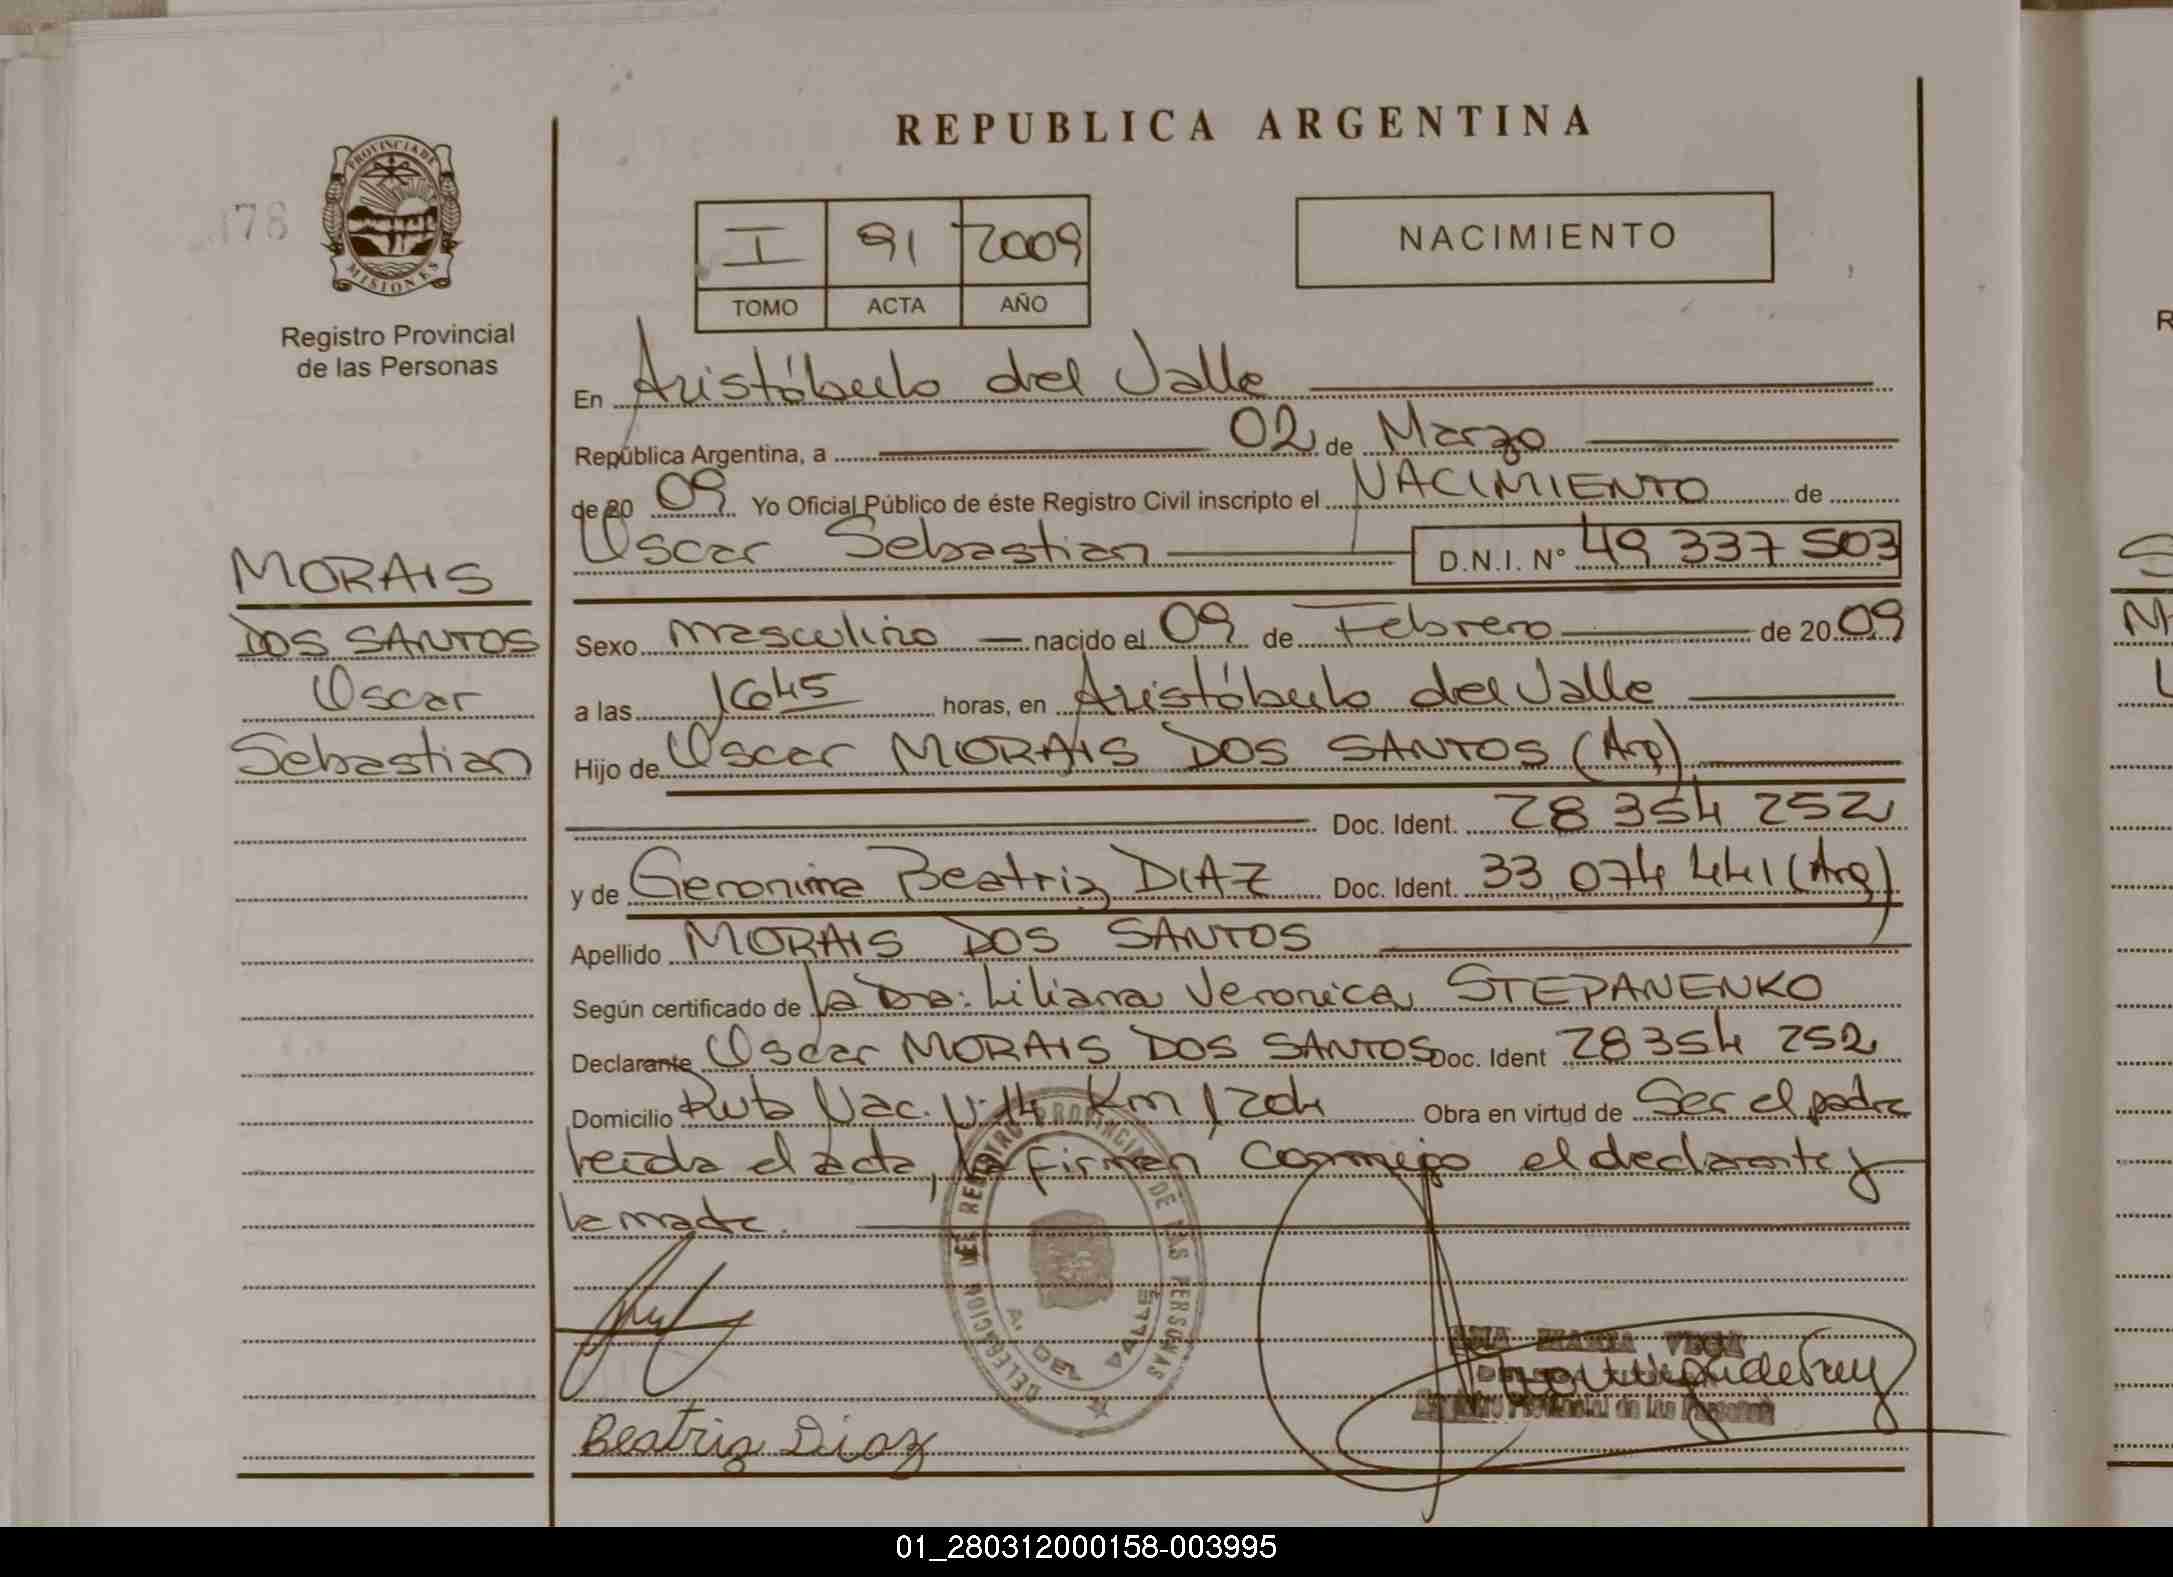 REPUBLICA ARGENTINA
178
PROVINCIA DE
MISIONES
Registro Provincial
de las Personas
I 91 2009
TOMO ACTA AÑO
NACIMIENTO
En Aristóbulo del Valle
República Argentina, a 02 de Marzo
de 20 09 Yo Oficial Público de éste Registro Civil inscripto el NACIMIENTO de
Oscar Sebastian D.N.I. N° 49 337 503
MORAIS
DOS SANTOS
Oscar
Sebastian
Sexo masculino nacido el 09 de Febrero de 20 09
a las 1645 horas, en Aristóbulo del Valle
Hijo de Oscar MORAIS DOS SANTOS (Arg)
Doc. Ident. 28 354 252
y de Geronima Beatriz DIAZ Doc. Ident. 33 074 441 (Arg)
Apellido MORAIS DOS SANTOS
Según certificado de la Dra: Liliana Veronica STEPANENKO
Declarante Oscar MORAIS DOS SANTOS Doc. Ident 28 354 252
Domicilio Ruta Nac. N° 14 Km 1204 Obra en virtud de Ser el padre
leida el acta, la firman conmigo el declarante y
la madre.
DELEGACION DEL REGISTRO PROVINCIAL DE LAS PERSONAS
A. DEL VALLE
VEGA
Provincial de las Personas
Beatriz Diaz
01_280312000158-003995